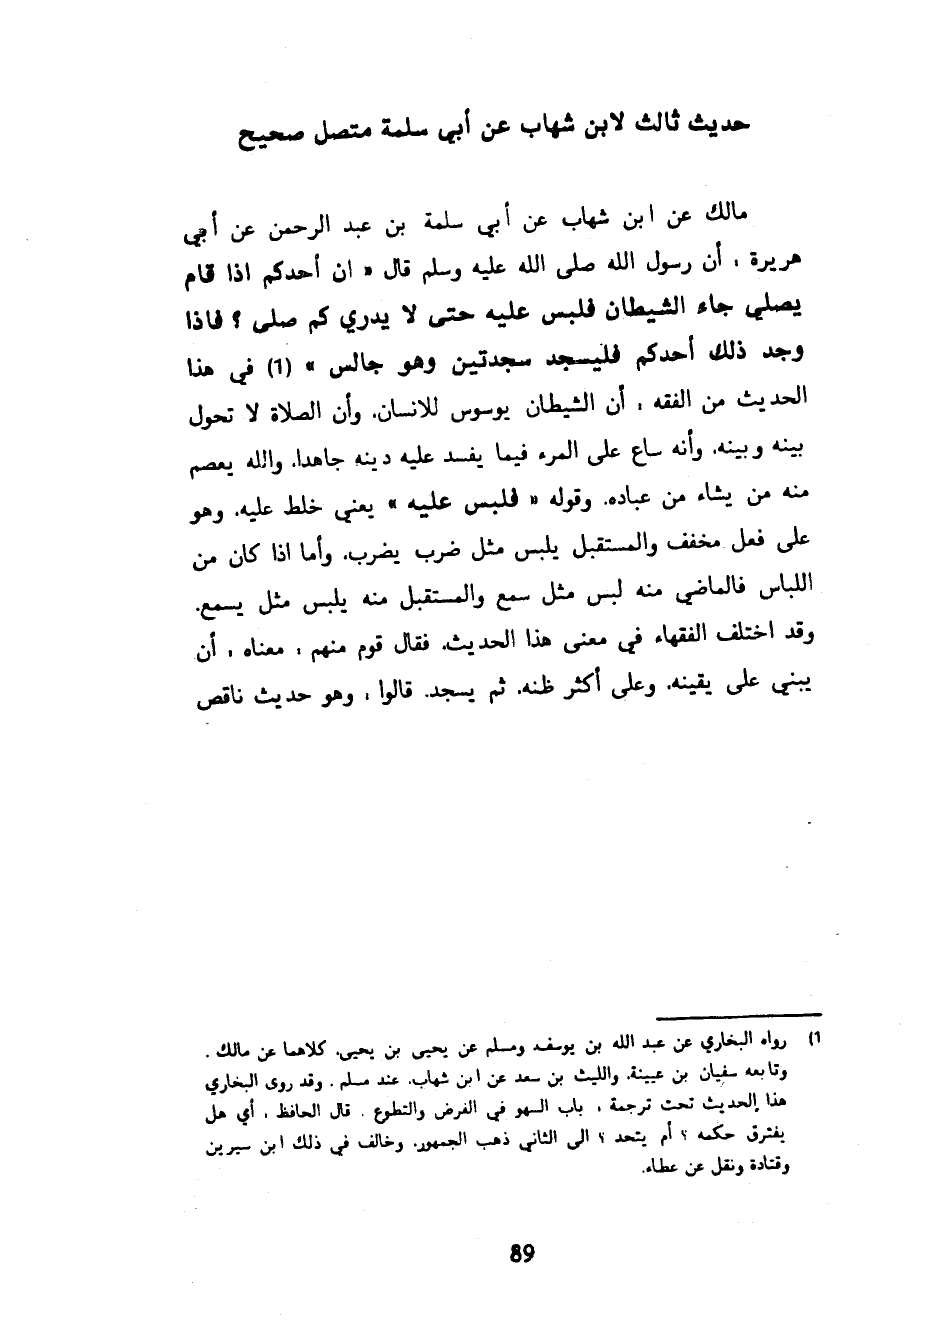 حديث ثالث لابن شهاب عن أبي سلمة متصل صحيح
مالك عن ابن شهاب عن أبي سلمة بن عبد الرحمن عن أبي
هريرة ، أن رسول الله صلى الله عليه وسلم قال « ان أحدكم اذا قام
يصلي جاء الشيطان فلبس عليه حتى لا يدري كم صلى ؟ فاذا
وجد ذلك أحدكم فليسجد سجدتين وهو جالس » (1) في هذا
الحديث من الفقه ، أن الشيطان يوسوس للانسان، وأن الصلاة لا تحول
بينه وبينه، وأنه ساع على المرء فيما يفسد عليه دينه جاهدا، والله يعصم
منه من يشاء من عباده. وقوله « فلبس عليه » يعني خلط عليه، وهو
على فعل مخفف والمستقبل يلبس مثل ضرب يضرب، وأما اذا كان من
اللباس فالماضي منه لبس مثل سمع والمستقبل منه يلبس مثل يسمع.
وقد اختلف الفقهاء في معنى هذا الحديث، فقال قوم منهم ، معناه ، أن
يبني على يقينه، وعلى أكثر ظنه، ثم يسجد. قالوا ، وهو حديث ناقص
1) رواه البخاري عن عبد الله بن يوسف، ومسلم عن يحيى بن يحيى، كلاهما عن مالك .
وتابعه سفيان بن عيينة، والليث بن سعد عن ابن شهاب، عند مسلم . وقد روى البخاري
هذا الحديث تحت ترجمة ، باب السهو في الفرض والتطوع . قال الحافظ ، أي هل
يفترق حكمه ؟ أم يتحد ؟ الى الثاني ذهب الجمهور، وخالف في ذلك ابن سيرين
وقتادة ونقل عن عطاء.
89